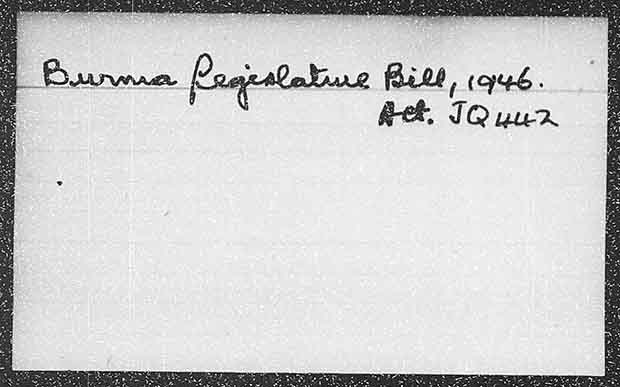 Burma Legislature Bill, 1946.
Act. JQ442